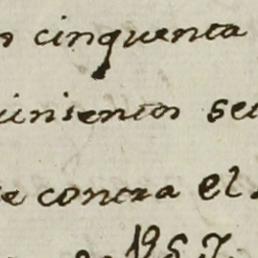 n cinquenta
uinientos se
e contra el
1957.